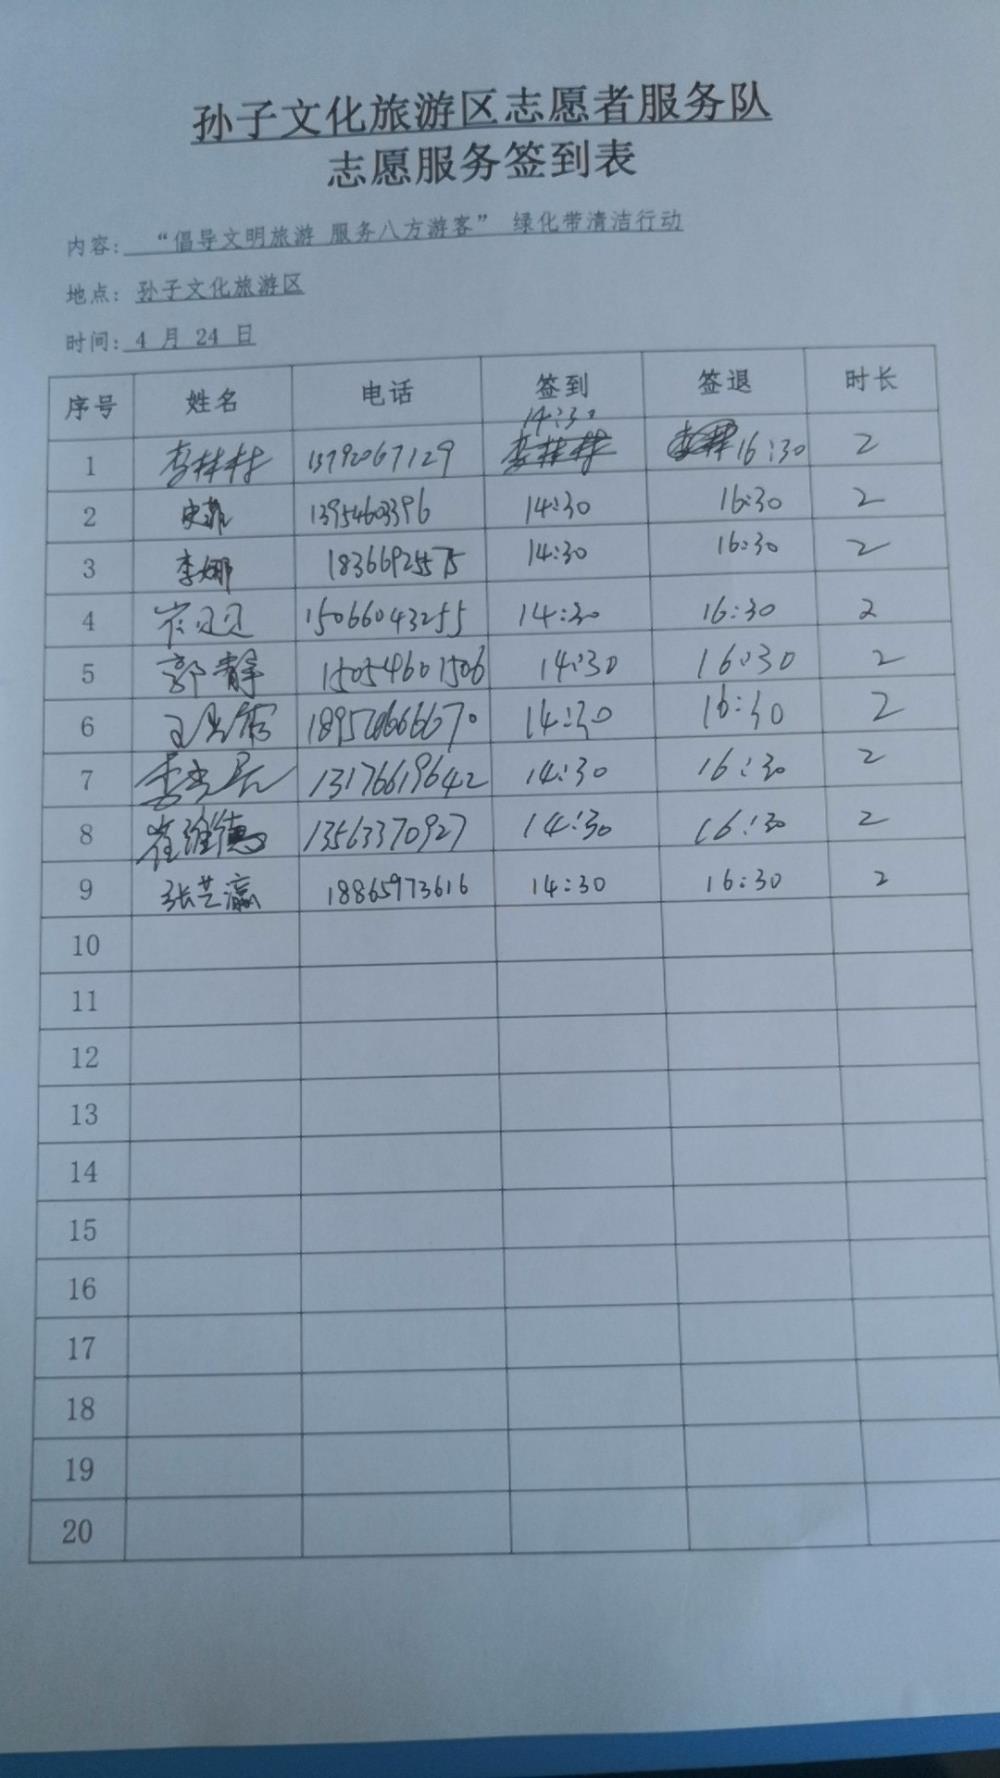 孙子文化旅游区志愿者服务队
志愿服务签到表
内容: “倡导文明旅游 服务八方游客” 绿化带清洁行动
地点: 孙子文化旅游区
时间: 4 月 24 日
序号 姓名 电话 签到 签退 时长
1 李林林 13792067129 14:30 16:30 2
2 史菲 13954603396 14:30 16:30 2
3 李娜 18366925575 14:30 16:30 2
4 崔贝贝 15066043255 14:30 16:30 2
5 郭静 15054601506 14:30 16:30 2
6 14:30 16:30 2
7 13176619642 14:30 16:30 2
8 崔维德 13563370927 14:30 16:30 2
9 张芸瀛 18865973616 14:30 16:30 2
10
11
12
13
14
15
16
17
18
19
20